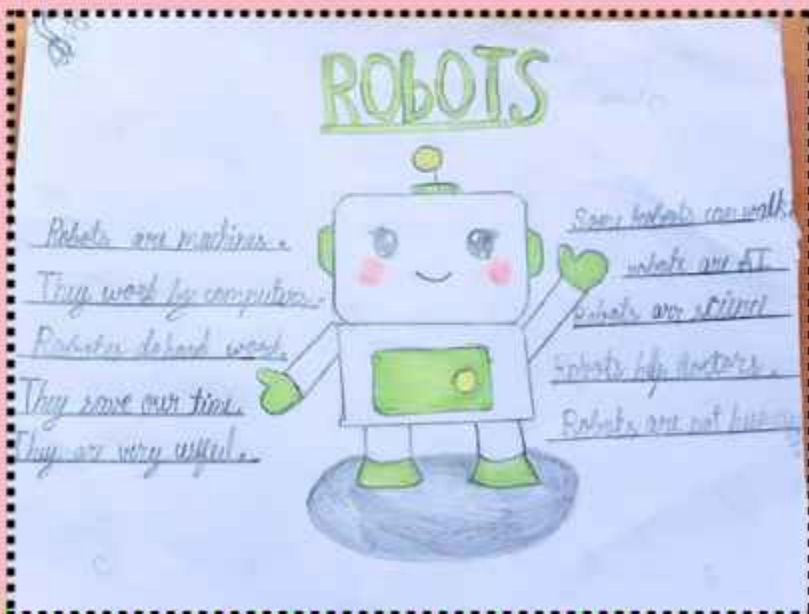 ROBOTS
Robots are machines.
They work by computers.
work.
They save our time.
They are very useful.
Some robots can walk.
robots are AI
Robots are
Robots help doctors.
Robots are not